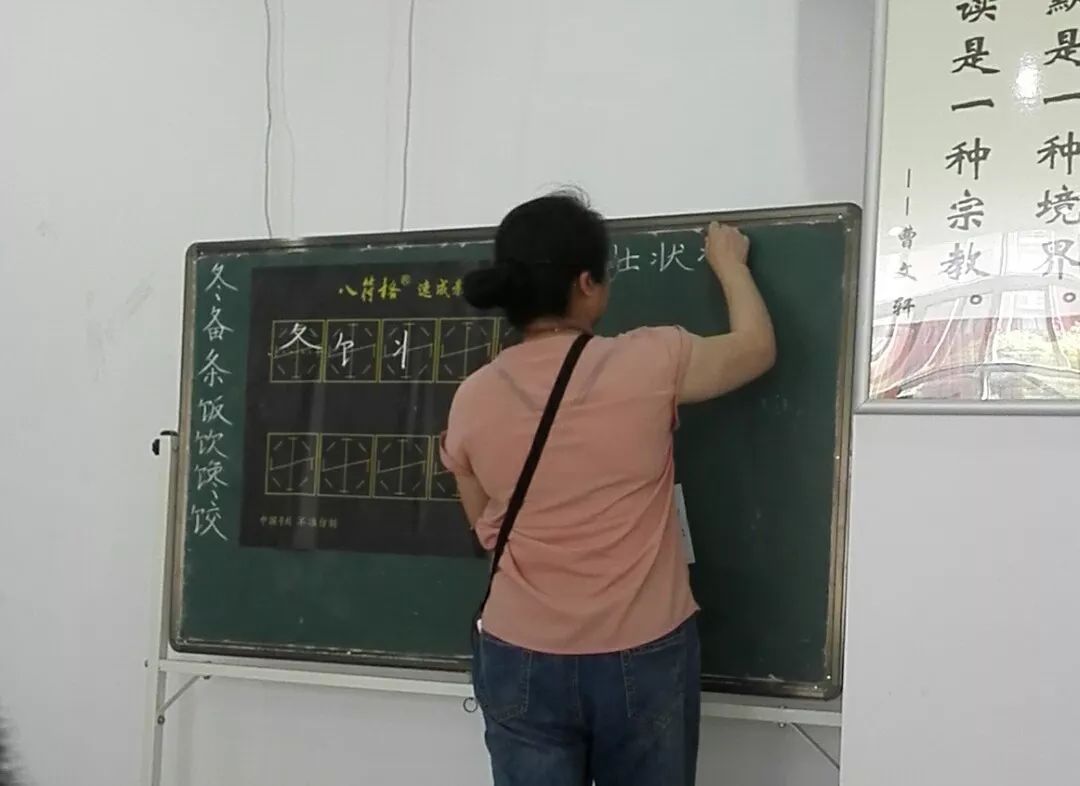 冬备条饭饮馋饺
八符格® 速成
夂饣丬
中国专利 不准仿制
壮状
默是一种境界。
读是一种宗教。
——曹文轩